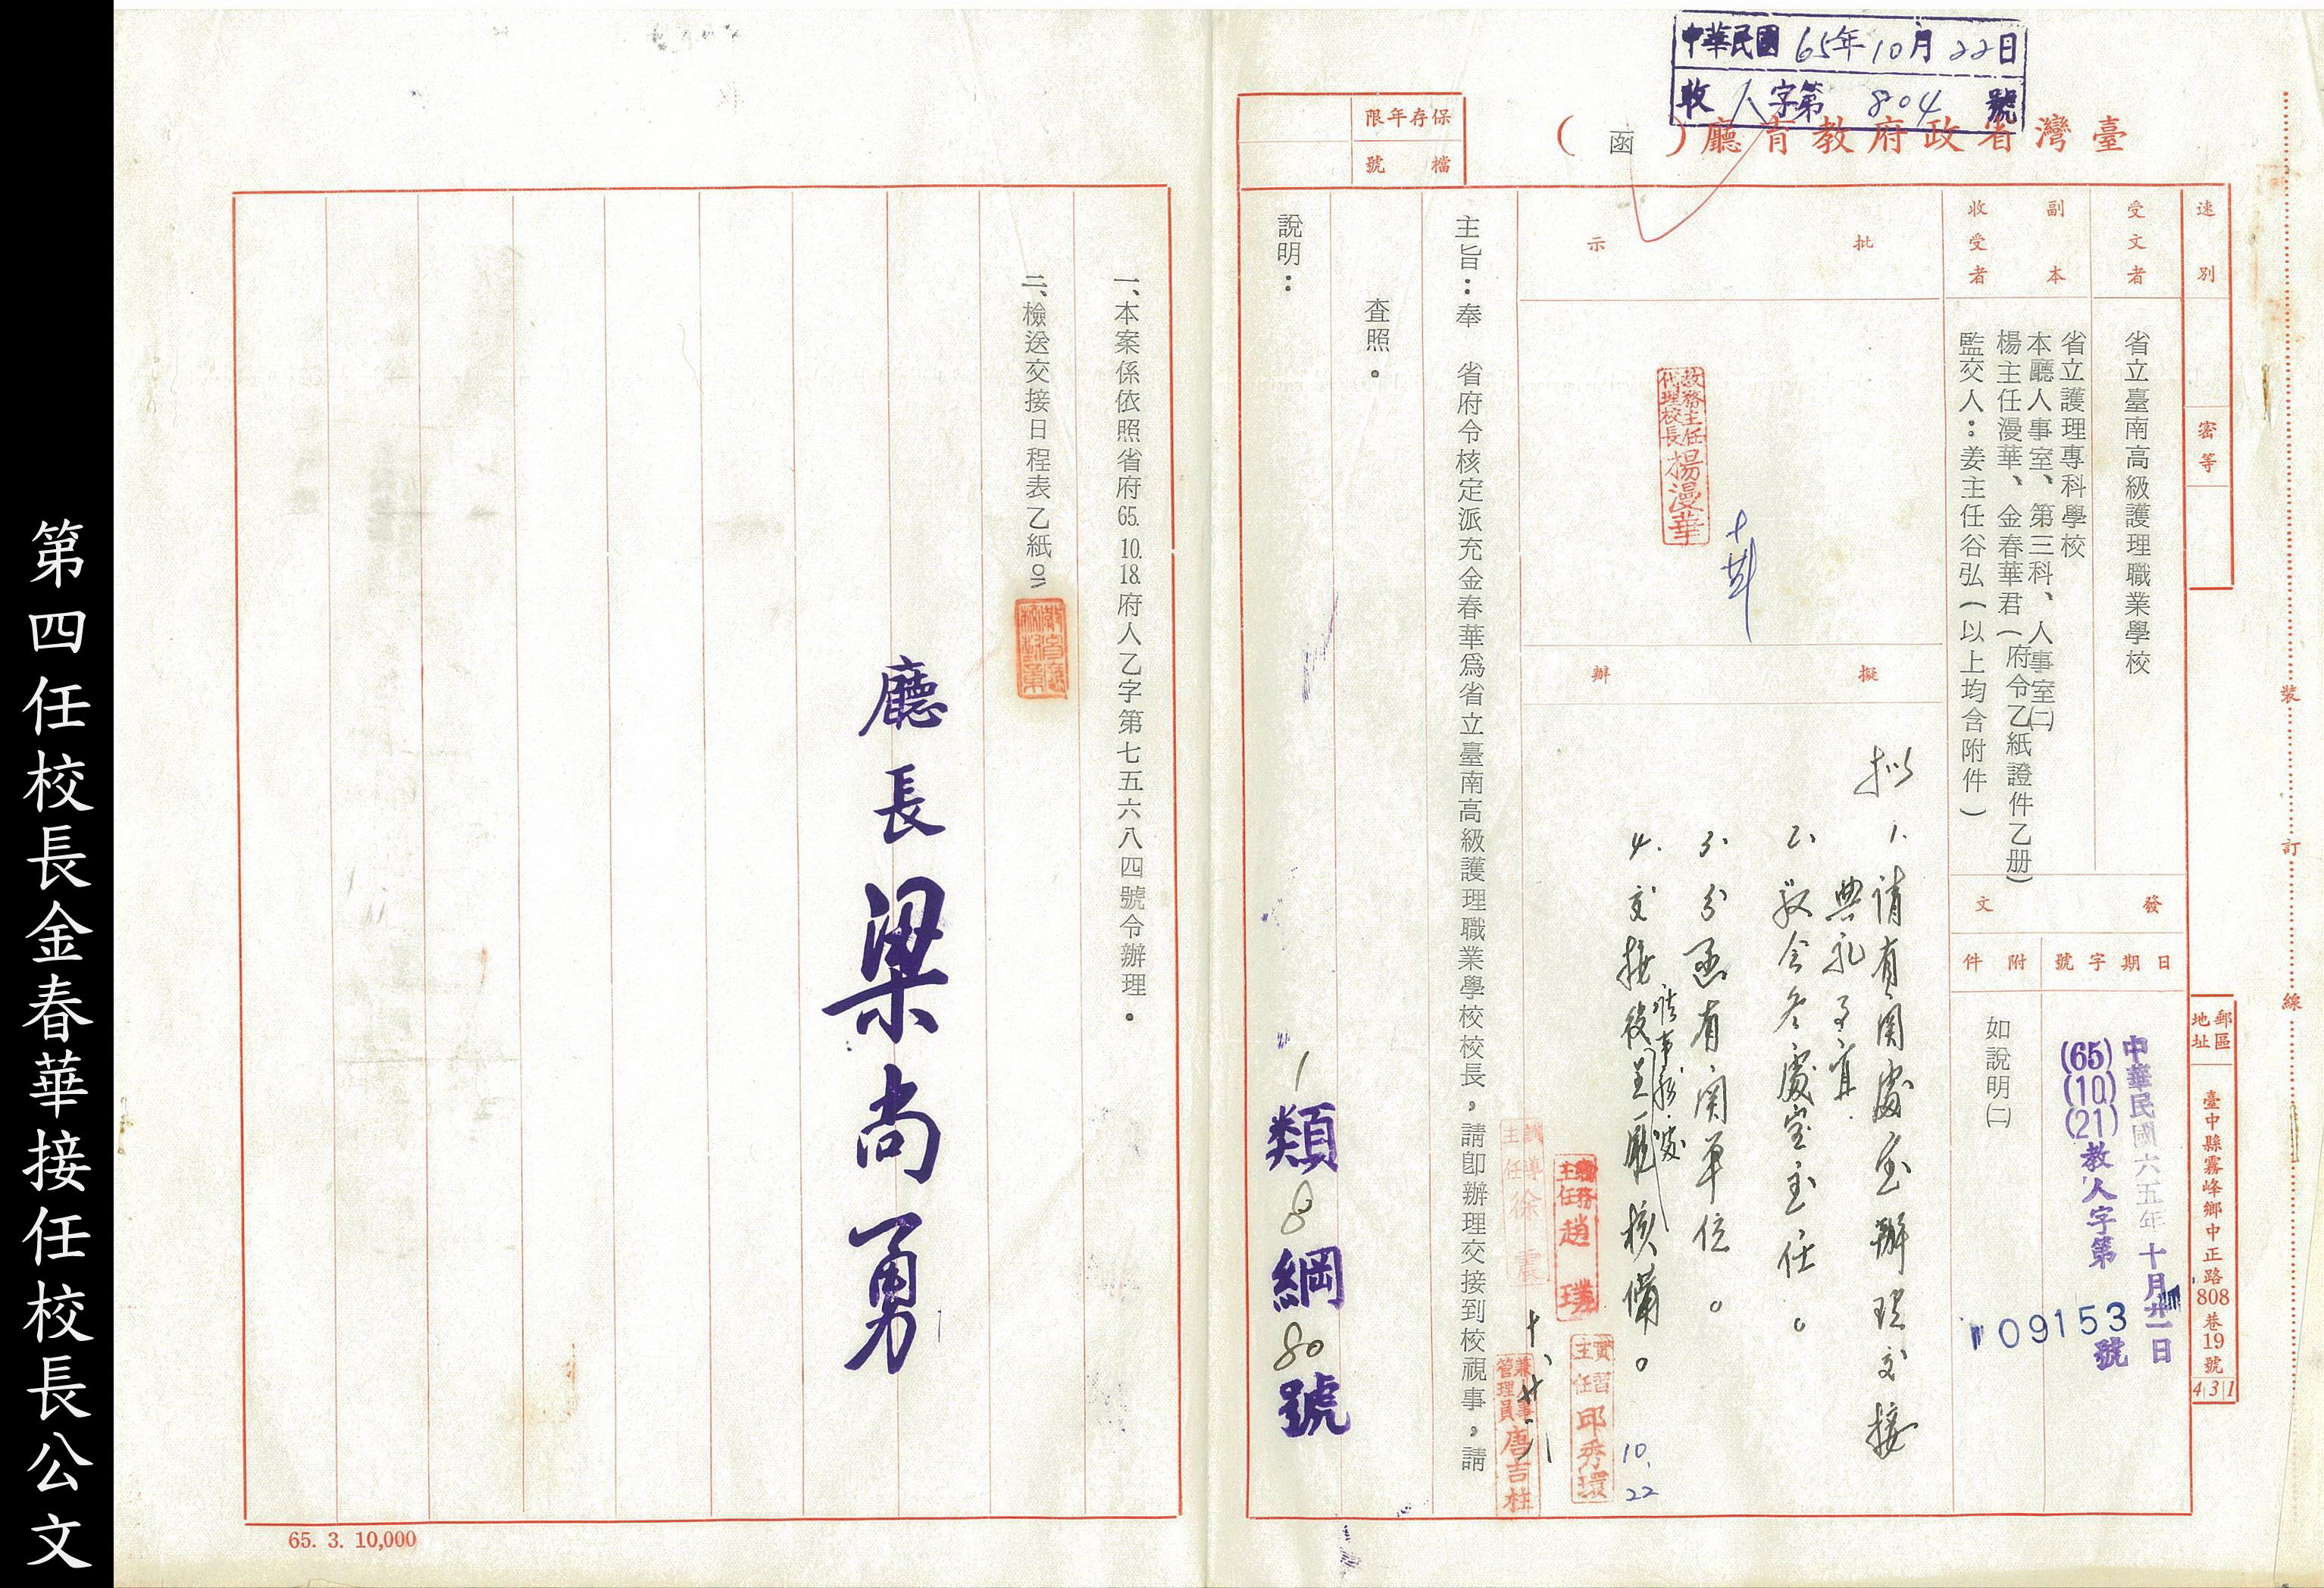 第四任校長金春華接任校長公文
中華民國 65年10月22日
收 人字第 804 號
臺灣省政府教育廳(函)
保存年限
檔號
裝訂線
速別
密等
郵區地址
臺中縣霧峰鄉中正路808巷19號
431
受文者
省立臺南高級護理職業學校
副本收受者
省立護理專科學校
本廳人事室、第三科、人事室㈡
楊主任漫華、金春華君(府令乙紙證件乙册)
監交人：姜主任谷弘(以上均含附件)
發文
日期字號
中華民國六五年十月廿一日
(65)(10)(21)教人字第
09153號
附件
如說明㈡
批示
教務主任
代理校長
楊漫華
擬辦
擬
1. 請有関處室辦理交接
典礼事宜.
2. 敬会各處室主任。
3. 分函有関單位。
4. 交接後呈廳核備。
10.22
總務主任趙璞
訓導主任徐震
實習主任邱秀環
管理員唐吉柱
主旨：奉 省府令核定派充金春華爲省立臺南高級護理職業學校校長，請卽辦理交接到校視事，請
查照。
說明：
1類8綱80號
一、本案係依照省府65.10.18.府人乙字第七五六八四號令辦理。
二、檢送交接日程表乙紙
廳長梁尚勇
65. 3. 10,000